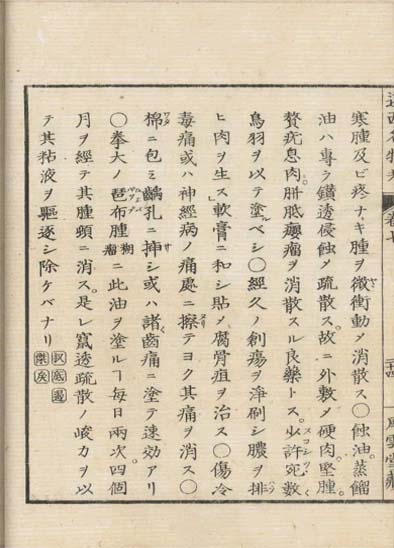 遠西名物考 卷七 二十四 風雲堂藏
寒腫及ビ疼ナキ腫ヲ微衝動メ消散ス〇蝕油蒸餾
油ハ專ラ鑽透侵蝕メ疏散ス。故ニ外敷メ硬肉堅腫。
贅疣息肉。胼胝癭瘤ヲ消散スル良藥トス。少許死數
鳥羽ヲ以テ塗ルベシ〇經久ノ創瘍ヲ淨刷シ膿ヲ排
ヒ肉ヲ生ス。軟膏ニ和シ貼メ腐骨疽ヲ治ス〇傷冷
毒痛或ハ神經病ノ痛處ニ擦テヨク其痛ヲ消ス〇
棉ニ包ミ齲孔ニ挿シ或ハ諸齒痛ニ塗テ速効アリ
〇拳大ノ琶布腫 糊瘤 ニ此油ヲ塗ルヿ每日兩次四個
月ヲ經テ其腫頓ニ消ス。是レ竄透疏散ノ峻力ヲ以
テ其粘液ヲ驅逐シ除ケバナリ